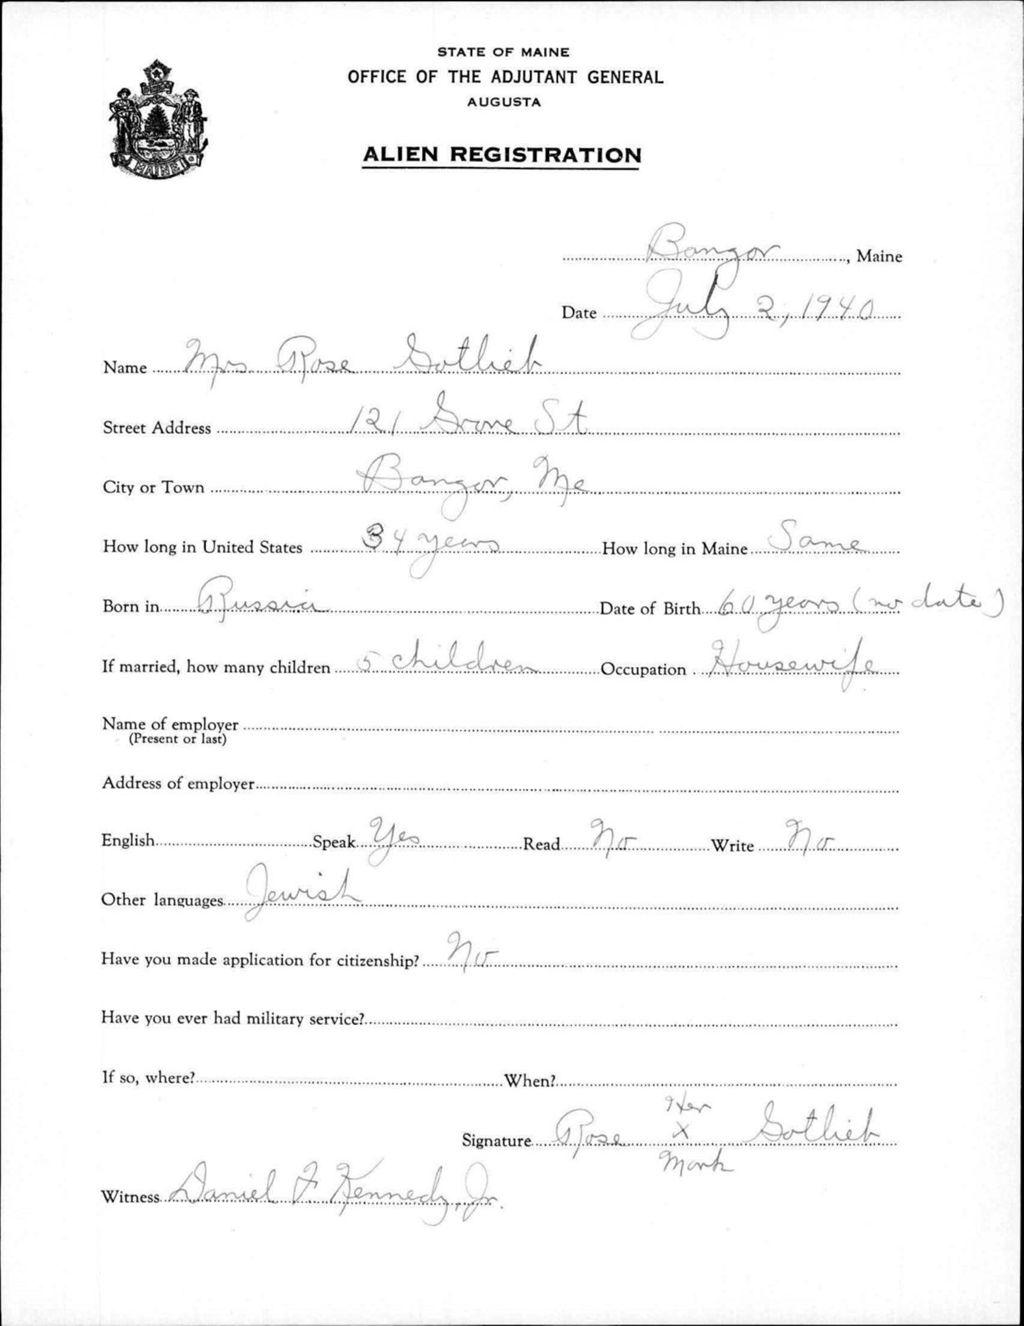 STATE OF MAINE
OFFICE OF THE ADJUTANT GENERAL
AUGUSTA
ALIEN REGISTRATION
MAINE
Bangor, Maine
Date July 2, 1940
Name Mrs Rose Gotlieb
Street Address 121 Grove St
City or Town Bangor, Me
How long in United States 34 years How long in Maine Same
Born in Russia Date of Birth 60 years (no date)
If married, how many children 5 children Occupation Housewife
Name of employer
(Present or last)
Address of employer
English Speak Yes Read No Write No
Other languages Jewish
Have you made application for citizenship? No
Have you ever had military service?
If so, where? When?
Her
Signature Rose X Gotlieb
Mark
Witness Daniel F Kennedy, Jr.